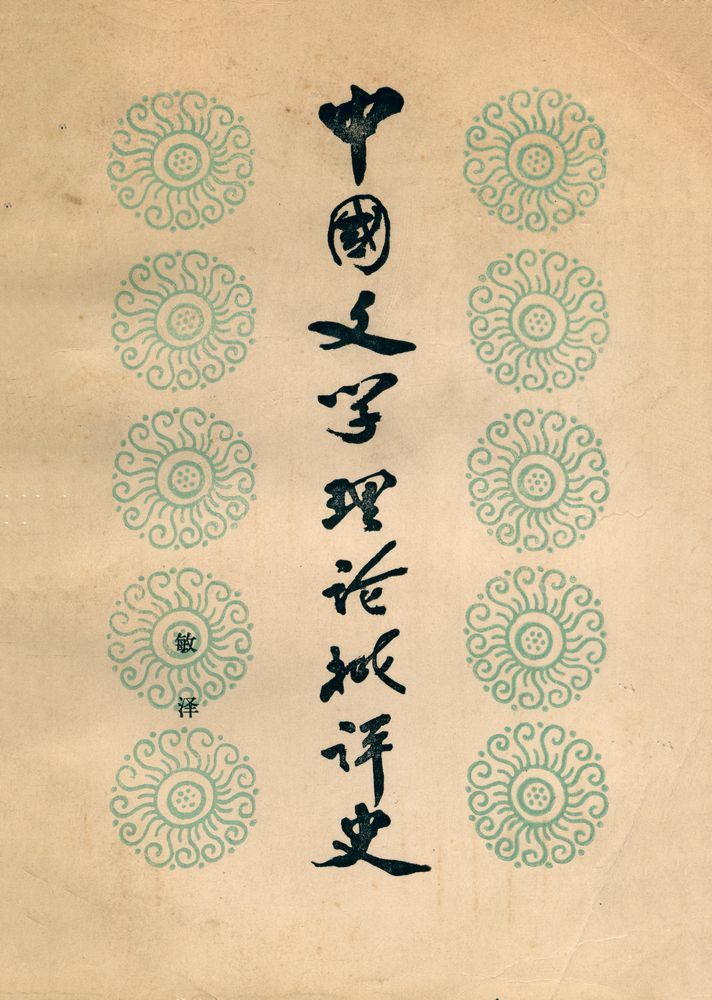 中國文学理论批评史
敏泽